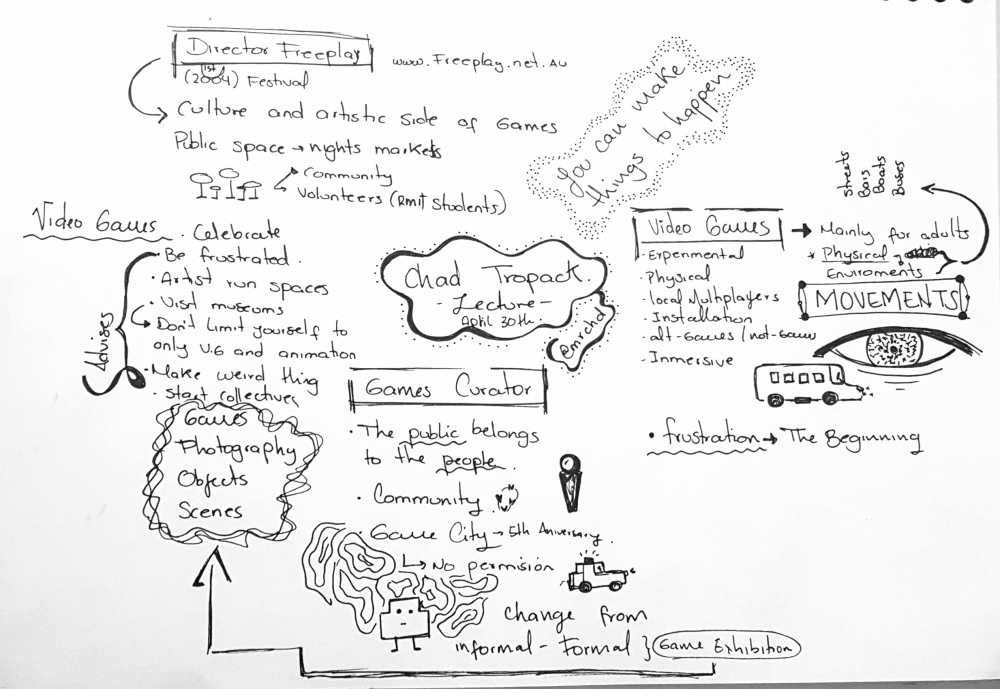 Director Freeplay
www.Freeplay.net.Au
1st
(2004) Festival
Culture and artistic side of Games
Public space → nights markets
Community
Volunteers (Rmit Students)
You can make
things to happen
Video Games
. Celebrate
. Be frustrated.
. Artist run spaces
. Visit museums
Don't Limit yourself to
only V.G and animation
. Make weird thing
. Start collectives
Advises
Games
Photography
Objects
Scenes
Chad Tropack
- Lecture -
April 30th.
@mrchd
Games Curator
. The public belongs
to the people.
. Community
. Game City → 5th Aniversary.
No permision
change from
informal - Formal } Game Exhibition
Video Games → Mainly for adults
* Physical →
Enviroments
Streets
Bais
Boats
Buses
. Expermental
. Physical
. local Multiplayers
. Installation
. alt-Games / not-Games
. Inmersive
MOVEMENTS
. frustration → The Beginning